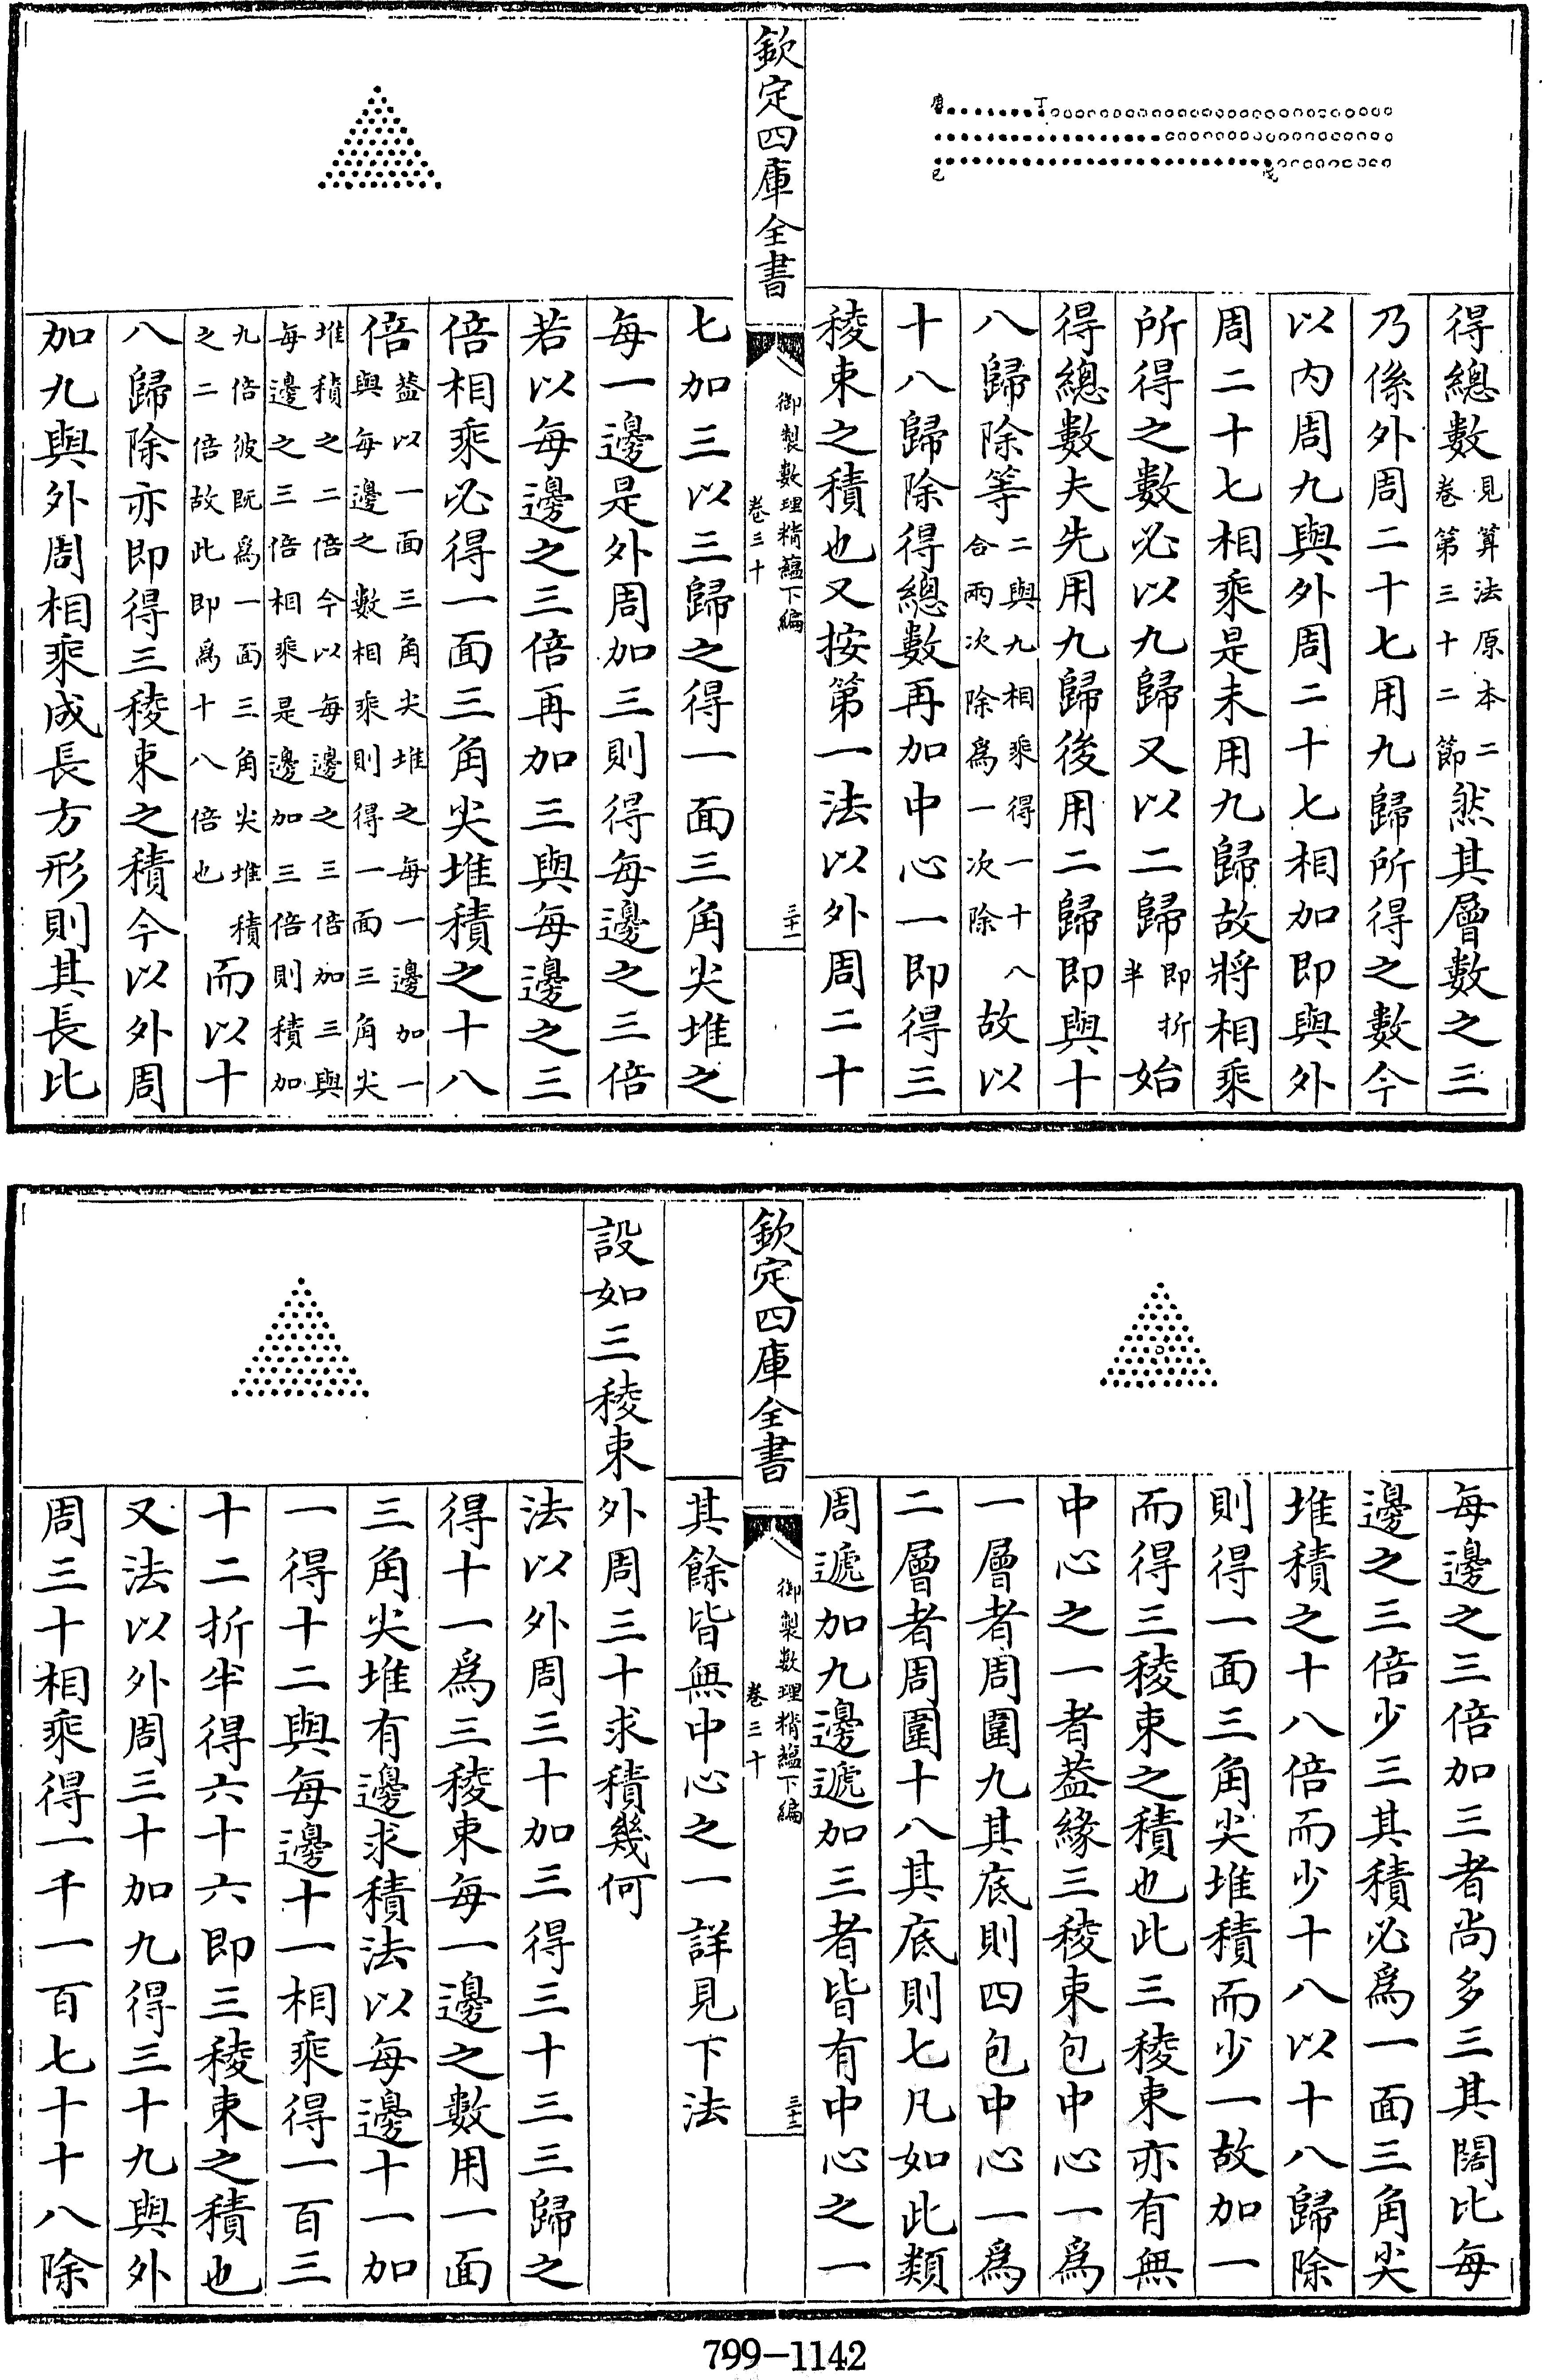 庚
丁
己
戊
得總數見算法原本二卷第三十二節然其層數之三
乃係外周二十七用九歸所得之數今
以内周九與外周二十七相加即與外
周二十七相乘是未用九歸故將相乘
所得之數必以九歸又以二歸即折半始
得總數夫先用九歸後用二歸即與十
八歸除等二與九相乘得一十八合兩次除爲一次除故以
十八歸除得總數再加中心一即得三
稜束之積也又按第一法以外周二十
欽定四庫全書
御製數理精藴下編
卷三十
三十一
七加三以三歸之得一面三角尖堆之
每一邊是外周加三則得每邊之三倍
若以每邊之三倍再加三與每邊之三
倍相乘必得一面三角尖堆積之十八
倍葢以一面三角尖堆之每一邊加一與每邊之數相乘則得一面三角尖
堆積之二倍今以每邊之三倍加三與每邊之三倍相乘是邊加三倍則積加
九倍彼既爲一面三角尖堆積之二倍故此即爲十八倍也而以十
八歸除亦即得三稜束之積今以外周
加九與外周相乘成長方形則其長比
每邊之三倍加三者尚多三其闊比每
邊之三倍少三其積必爲一面三角尖
堆積之十八倍而少十八以十八歸除
則得一面三角尖堆積而少一故加一
而得三稜束之積也此三稜束亦有無
中心之一者葢緣三稜束包中心一爲
一層者周圍九其底則四包中心一爲
二層者周圍十八其底則七凡如此類
周遞加九邊遞加三者皆有中心之一
欽定四庫全書
御製數理精藴下編
卷三十
三十二
其餘皆無中心之一詳見下法
設如三稜束外周三十求積幾何
法以外周三十加三得三十三三歸之
得十一爲三稜束每一邊之數用一面
三角尖堆有邊求積法以每邊十一加
一得十二與每邊十一相乘得一百三
十二折半得六十六即三稜束之積也
又法以外周三十加九得三十九與外
周三十相乘得一千一百七十十八除
799-1142